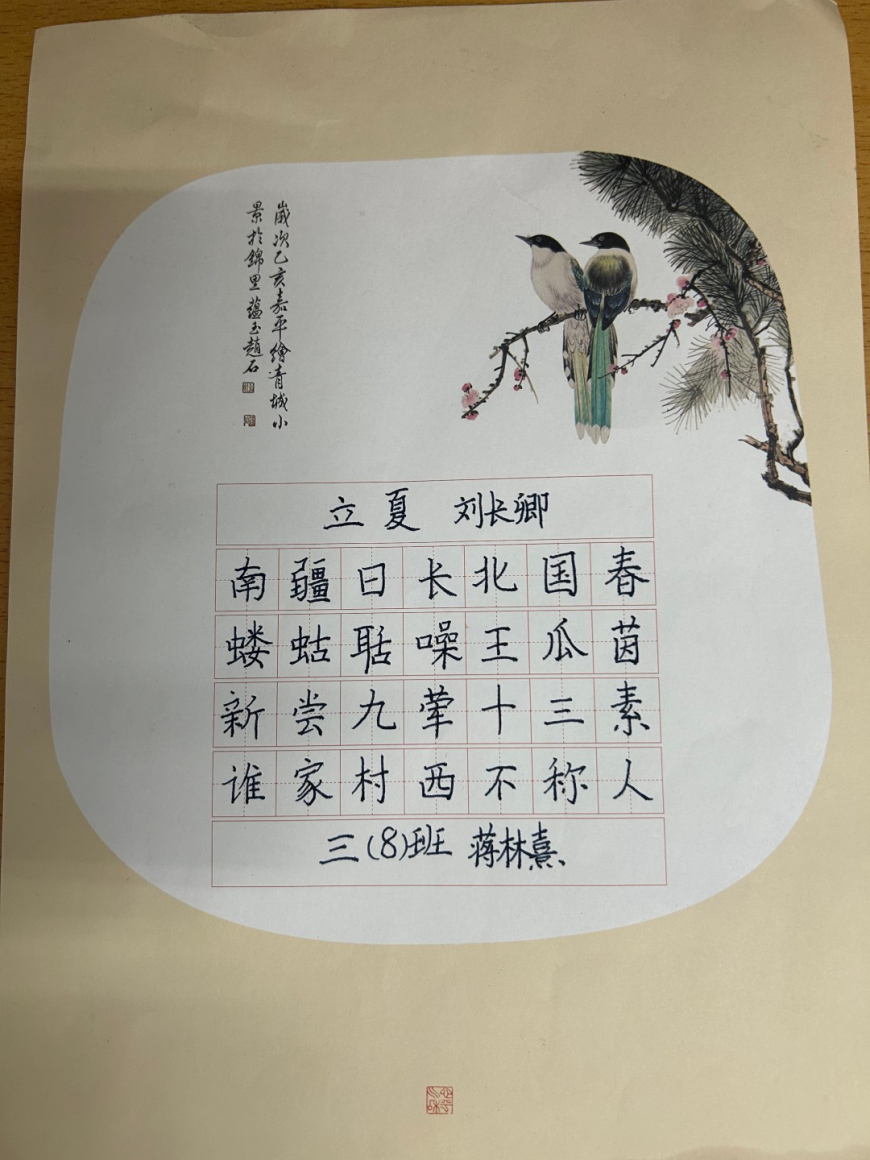 歲次乙亥嘉平繪青城小
景於錦里蘊玉趙石
立夏 刘长卿
南疆日长北国春
蝼蛄聒噪王瓜茵
新尝九荤十三素
谁家村西不称人
三(8)班 蒋林熹